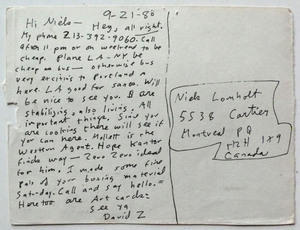 9-21-80
Hi Niels — Hey, all right.
My phone 213-392-9060. Call
after 11 pm or on weekend to be
cheap. Plane LA-NY be
cheap on bus — otherwise bus
very exciting to Portland or
here. LA good for santa. Will
be nice to see you. B are
stabilizing, also living. All
important things. Since you
are looking there will see if
you can here. is the
Western Agent. Hope Kantor
finds way — Zero Zero ideal
for him. I made some fine
pals of your busing material
Saturday. Call and say hello.
Here too are Art cards.
See ya
David Z
Niels Lomholt
5538 Cartier
Montreal PQ
H2H 1X9
Canada